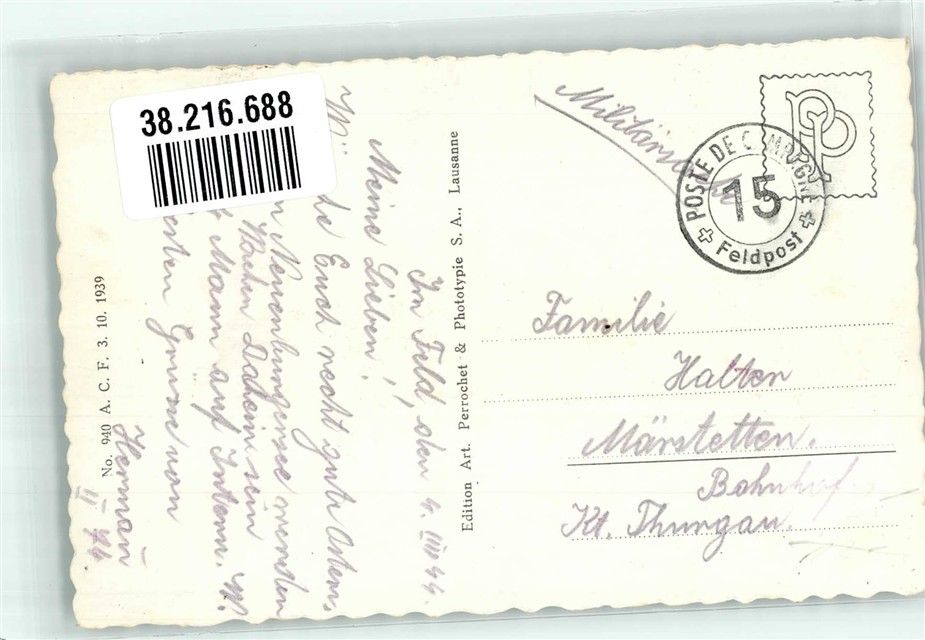 38.216.688
Militärs
POSTE DE C MPAGNE
15
Feldpost
PP
Im Feld, den 4. III 44.
Meine Lieben!
Euch recht gute Ostern,
Neuenburgersee werden
sein
Mann auf Intern. W.
Grüsse von
Herman
No. 940 A. C. F. 3. 10. 1939
Edition Art. Perrochet & Phototypie S. A., Lausanne
Familie
Halter
Märstetten.
Bahnhof
Kt. Thurgau.